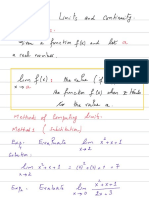 Limits and continuity
Given a function f(x) and let a
a real number.
lim f(x) : the value (if
x → a
the function f(x) when x tends
to the value a.
Methods of computing limit.
Method 1 (Substitution)
Eg. Evaluate lim x²+x+1
x→2
Solution
lim x²+x+1 = (2)²+2+1 = 7
x→2
Eg2 Evaluate lim x²+x-1
2x-3